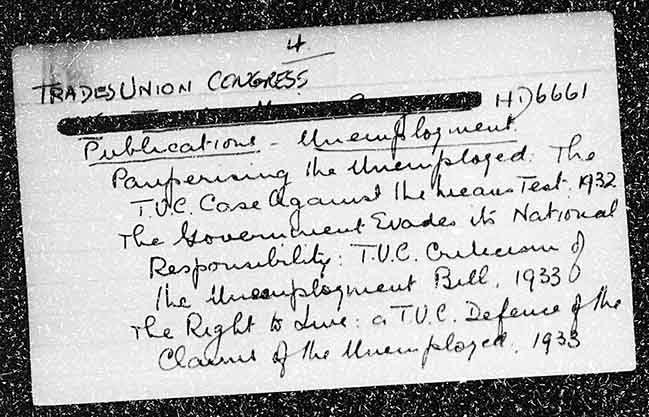 4
TRADES UNION CONGRESS
HD6661
Publications - Unemployment.
Pauperising the Unemployed: The
T.U.C. Case Against the Means Test. 1932
The Government Evades its National
Responsibility: T.U.C. Criticism of
the Unemployment Bill, 1933
The Right to Live: a T.U.C. Defence of the
Claims of the Unemployed. 1933